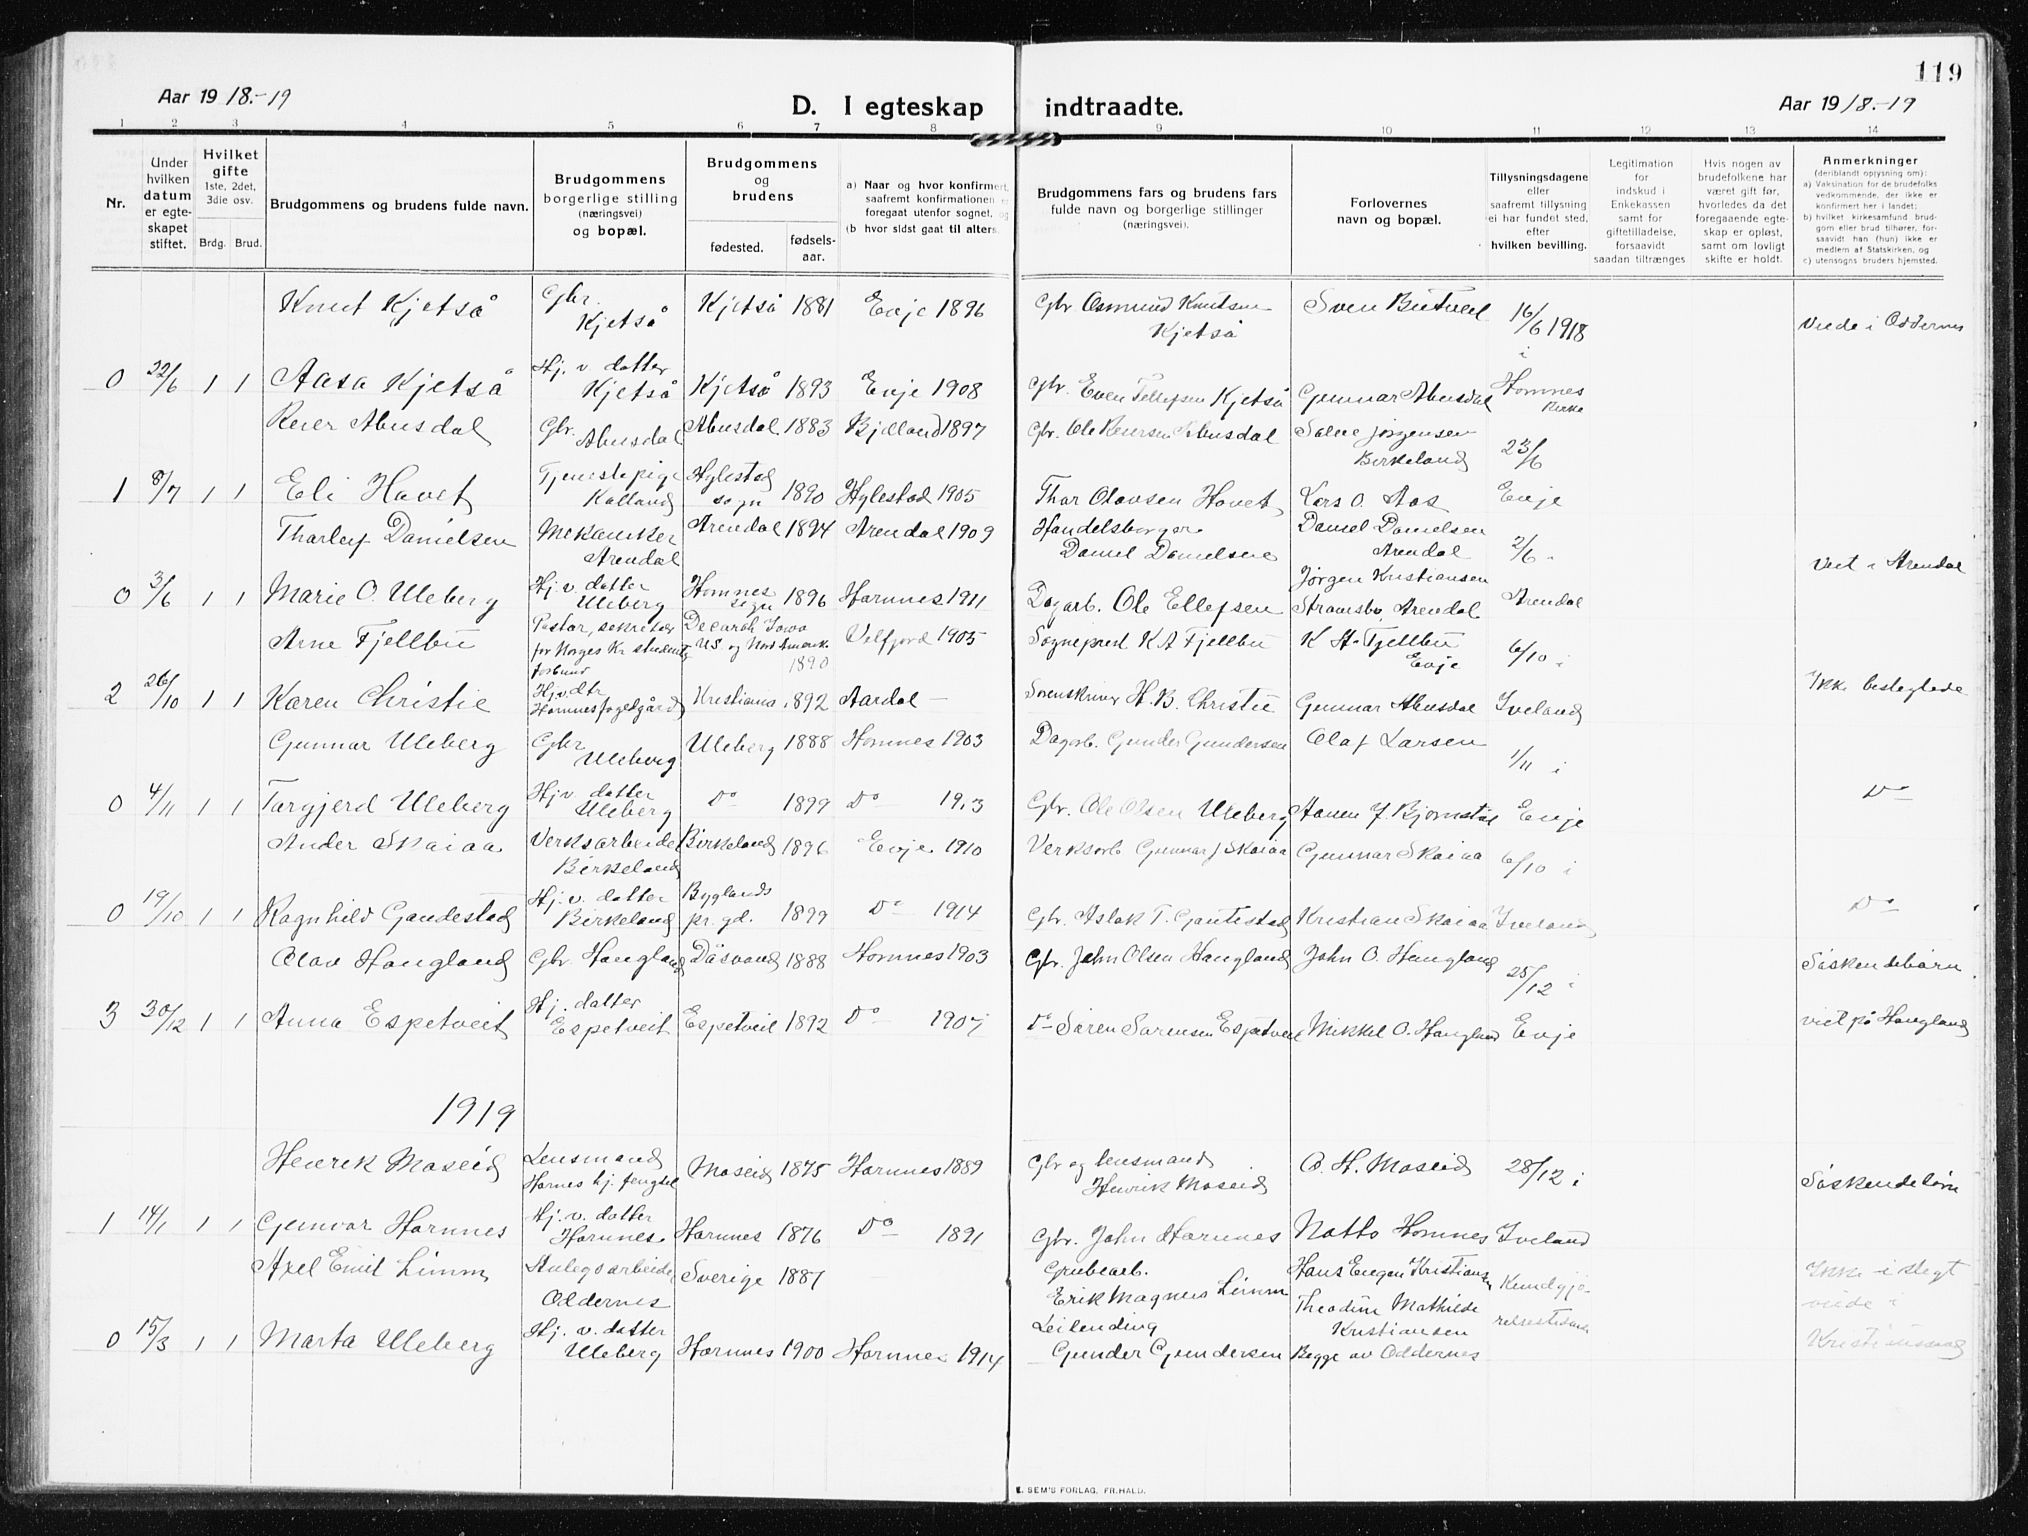 119
Aar 1918.-19
D. I egteskap indtraadte.
Aar 1918.-19
1 2 3 4 5 6 7 8 9 10 11 12 13 14
Nr.
Under hvilken datum er egteskapet stiftet.
Hvilket gifte 1ste, 2det, 3die osv.
Brdg. Brud.
Brudgommens og brudens fulde navn.
Brudgommens borgerlige stilling (næringsvei) og bopæl.
Brudgommens og brudens
fødested.
fødselsaar.
a) Naar og hvor konfirmert, saafremt konfirmationen er foregaat utenfor sognet, og
(b hvor sidst gaat til alters.
Brudgommens fars og brudens fars fulde navn og borgerlige stillinger (næringsvei).
Forlovernes navn og bopæl.
Tillysningsdagene eller saafremt tillysning ei har fundet sted, efter hvilken bevilling.
Legitimation for indskud i Enkekassen samt for giftetilladelse, forsaavidt saadan tiltrænges
Hvis nogen av brudefolkene har været gift før, hvorledes da det foregaaende egteskap er opløst, samt om lovligt skifte er holdt.
Anmerkninger (deriblandt oplysning om):
a) Vaksination for de brudefolks vedkommende, der ikke er konfirmert her i landet;
b) hvilket kirkesamfund brudgom eller brud tilhører, forsaavidt han (hun) ikke er medlem af Statskirken, og
c) utensogns bruders hjemsted.
Knut Kjetså Gbr. Kjetså Kjetså 1881 Evje 1896 Gbr Osmund Knutsen Kjetså Sven 16/6 1918 Viede i Oddernes
0 22/6 1 1 Aasa Kjetså Hj. v. datter Kjetså Kjetså 1893 Evje 1908 Gbr. Even Tellefsen Kjetså Gunnar Abusdal i Hornnes kirke
Reier Abusdal Gbr. Abusdal Abusdal 1883 Bjelland 1897 Gbr. Ole Reiersen Abusdal Salve Jørgensen Birkeland 23/6
1 8/7 1 1 Eli Hovet Tjenestepige Kalland Hylestad sogn 1890 Hylestad 1905 Thor Olavsen Hovet Lars O. Aas Evje
Tharleif Danielsen Mekaniker Arendal Arendal 1894 Arendal 1909 Handelsborger Daniel Danielsen Daniel Danielsen Arendal 2/6 Viet i Arendal
0 3/6 1 1 Marie O. Uleberg Hj. v. datter Uleberg Hornnes sogn 1896 Hornnes 1911 Dagarb. Ole Ellefsen Jørgen Kristiansen Strømsbo, Arendal Arendal
Arne Fjellbu Pastor, sekretær for Norges Kr. student forbund Decorah Iowa US. og Nord Amerik. 1890 Velfjord 1905 Sogneprest K A Fjellbu K A Fjellbu Evje 6/10 i
2 26/10 1 1 Karen Christie Hj. v. dtr Hornnes fogedgård Kristiania 1892 Aardal — Sorenskriver H. B. Christie Gunnar Abusdal Iveland Ikke beslegtede
Gunnar Uleberg Gbr Uleberg Uleberg 1888 Hornnes 1903 Dagarb. Gunder Gundersen Olaf Larsen 1/11 i
0 4/11 1 1 Torgjerd Uleberg Hj. v. datter Uleberg Do 1899 Do 1913 Gbr. Ole Olsen Uleberg Aanen J. Bjørnstøl Evje Do
Ander Skaiaa Verksarbeider Birkeland Birkeland 1896 Evje 1910 Verksarb Gunnar J Skaiaa Gunnar Skaiaa 6/10 i
0 19/10 1 1 Ragnhild Gandestad Hj. v. datter Birkeland Byglands pr. gd. 1899 Do 1914 Gbr. Aslak T. Gautestad Kristian Skaiaa Iveland Do
Olav Haugland Gbr. Haugland Dåsvand 1888 Hornnes 1903 Gbr. John Olsen Haugland John O. Haugland 25/12 i Søskendebarn.
3 30/12 1 1 Anna Espetveit Hj. datter Espetveit Espetveit 1892 Do 1907 Do Søren Sørensen Espetveit Mikkel O. Haugland Evje viet på Haugland
1919
Henrik Moseid Lensmand Hornes hj. fengsel Moseid 1875 Hornnes 1889 Gbr og lensmand Henrik Moseid O. H. Moseid 28/12 i Søskendebørn
1 14/1 1 1 Gunvor Hornnes Hj. v. datter Hornnes. Hornnes 1876 Do 1891 Gbr. John Hornnes Notto Hornnes Iveland
Axel Emil Limm Anlegsarbeider Oddernes Sverige 1887 Grubearb. Erik Magnus Limm Hans Eugen Kristiansen Theodine Mathilde Kristiansen Ikke i slegt viede i Kristianssand
0 15/3 1 1 Marta Uleberg Hj. v. datter Uleberg Hornnes 1900 Hornnes 1914 Leilending Gunder Gundersen Begge av Oddernes
E. SEM'S FORLAG, FR.HALD.